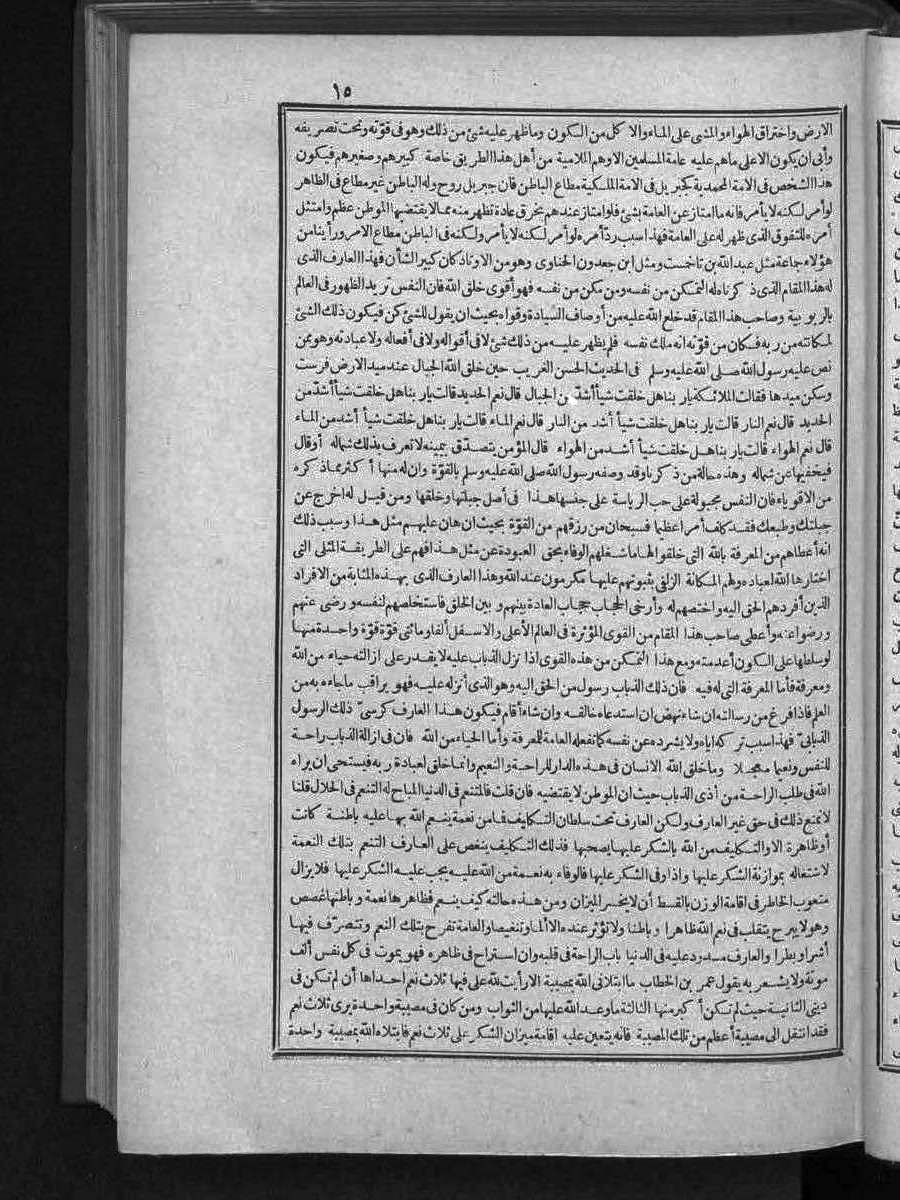 ١٥
الارض واختراق الهواء والمشى على الماء والاكل من الكون وماظهر عليه شئ من ذلك وهو فى قوّته وتحت تصريفه
وأبى ان يكون الاعلى ماهم عليه عامة المسلمين الاوهم الملامية من أهل هذا الطريق خاصة كبيرهم وصغيرهم فيكون
هذا الشخص فى الامة المحمدية كجبريل فى الامة الملكية مطاع الباطن فان جبريل روح وله الباطن غير مطاع فى الظاهر
لوأمر لكنه لايأمر فانه ماامتاز عن العامة بشئ فلوامتاز عندهم بخرق عادة تظهر منه ممالايقتضيها الموطن عظم وامتثل
أمره للتفوق الذى ظهر له على العامة فهذا سبب ردّ أمره لوأمر لكنه لايأمر ولكنه فى الباطن مطاع الامر ورأينا من
هؤلاء جماعة مثل عبد الله بن تاخست ومثل ابن جعدون الحناوى وهو من الاوتاد كان كبير الشأن فهذا العارف الذى
له هذا المقام الذى ذكرناه له التمكن من نفسه ومن مكن من نفسه فهو أقوى خلق الله فان النفس تريد الظهور فى العالم
بالربوبية وصاحب هذا المقام قد خلع الله عليه من أوصاف السيادة وقواه بحيث ان يقول للشئ كن فيكون ذلك الشئ
لمكانته من ربه فكان من قوّته انه ملك نفسه فلم يظهر عليه من ذلك شئ لافى أقواله ولافى أفعاله ولاعبادته وهو ممن
نص عليه رسول الله صلى الله عليه وسلم فى الحديث الحسن الغريب حين خلق الله الجبال عند ميد الارض فرست
وسكن ميدها فقالت الملائكة يار بناهل خلقت شيأ أشدّ من الجبال قال نعم الحديد قالت يار بناهل خلقت شيأ أشدّ من
الحديد قال نعم النار قالت يار بناهل خلقت شيأ أشد من النار قال نعم الماء قالت يار بناهل خلقت شيأ أشد من الماء
قال نعم الهواء قالت يار بناهل خلقت شيأ أشد من الهواء قال المؤمن يتصدّق بيمينه لاتعرف بذلك شماله أوقال
فيخفيها عن شماله وهذه حالة من ذكرنا وقد وصفه رسول الله صلى الله عليه وسلم بالقوّة وان له منها أكثر مماذكره
من الاقوياء فان النفس مجبولة على حب الرياسة على جنسها هذا فى أصل جبلتها وخلقها ومن قيل له اخرج عن
جبلتك وطبعك فقد كلف أمرا عظيما فسبحان من رزقهم من القوّة بحيث ان هان عليهم مثل هذا وسبب ذلك
انه أعطاهم من المعرفة بالله التى خلقوا لها ماشغلهم الوفاء بحق العبودة عن مثل هذا فهم على الطريقة المثلى التى
اختارها الله لعباده ولهم المكانة الزلفى بثبوتهم عليها مكرمون عند الله وهذا العارف الذى بهذه المثابة من الافراد
الذين أفردهم الحق اليه واختصهم له وأرخى الحجاب حجاب العادة بينهم وبين الخلق فاستخلصهم لنفسه ورضى عنهم
ورضوا عنه وأعطى صاحب هذا المقام من القوى المؤثرة فى العالم الأعلى والاسفل ألفا ومائتى قوّة قوّة واحدة منها
لوسلطها على الكون أعدمته ومع هذا التمكن من هذه القوى اذا نزل الذباب عليه لايقدر على ازالته حياء من الله
ومعرفة فأما المعرفة التى له فيه فان ذلك الذباب رسول من الحق اليه وهو الذى أنزله عليه فهو يراقب ماجاءه به من
العلم فاذا فرغ من رسالته ان شاء نهض ان استدعاه خالقه وان شاء أقام فيكون هذا العارف كرسىّ ذلك الرسول
الذبابىّ فهذا سبب تركه اياه ولايشرده عن نفسه كما تفعله العامة للمعرفة وأما الحياء من الله فان فى ازالة الذباب راحة
للنفس ونعيما معجلا وماخلق الله الانسان فى هذه الدار للراحة والنعيم وانما خلق لعبادة ربه فيستحى ان يراه
الله فى طلب الراحة من أذى الذباب حيث ان الموطن لايقتضيه فان قلت فالتنعم فى الدنيا المباح له التنعم فى الحلال قلنا
لانمنع ذلك فى حق غير العارف ولكن العارف تحت سلطان التكليف فمامن نعمة ينعم الله بها عليه باطنة كانت
أوظاهرة الاوالتكليف من الله بالشكر عليها يصحبها فذلك التكليف ينغص على العارف التنعم بتلك النعمة
لاشتغاله بموازنة الشكر عليها واذاوفى الشكر عليها فالوفاء به نعمة من الله عليه يجب عليه الشكر عليها فلايزال
متعوب الخاطر فى اقامة الوزن بالقسط أن لايخسر الميزان ومن هذه حالته كيف ينعم فظاهرها نعمة وباطنها غصص
وهو لايبرح يتقلب فى نعم الله ظاهرا وباطنا ولاتؤثر عنده الاألما وتنغيصا والعامة تفرح بتلك النعم وتتصرّف فيها
أشرا وبطرا والعارف مسدود عليه فى الدنيا باب الراحة فى قلبه وان استراح فى ظاهره فهو يموت فى كل نفس ألف
موتة ولايشعر به يقول عمر بن الخطاب ماابتلانى الله بمصيبة الارأيت لله علىّ فيها ثلاث نعم احداها أن لم تكن فى
دينى الثانية حيث لم تكن أكبر منها الثالثة ماوعد الله عليها من الثواب ومن كان فى مصيبة واحدة يرى ثلاث نعم
فقد انتقل الى مصيبة أعظم من تلك المصيبة فانه يتعين عليه اقامة ميزان الشكر على ثلاث نعم فابتلاه الله بمصيبة واحدة